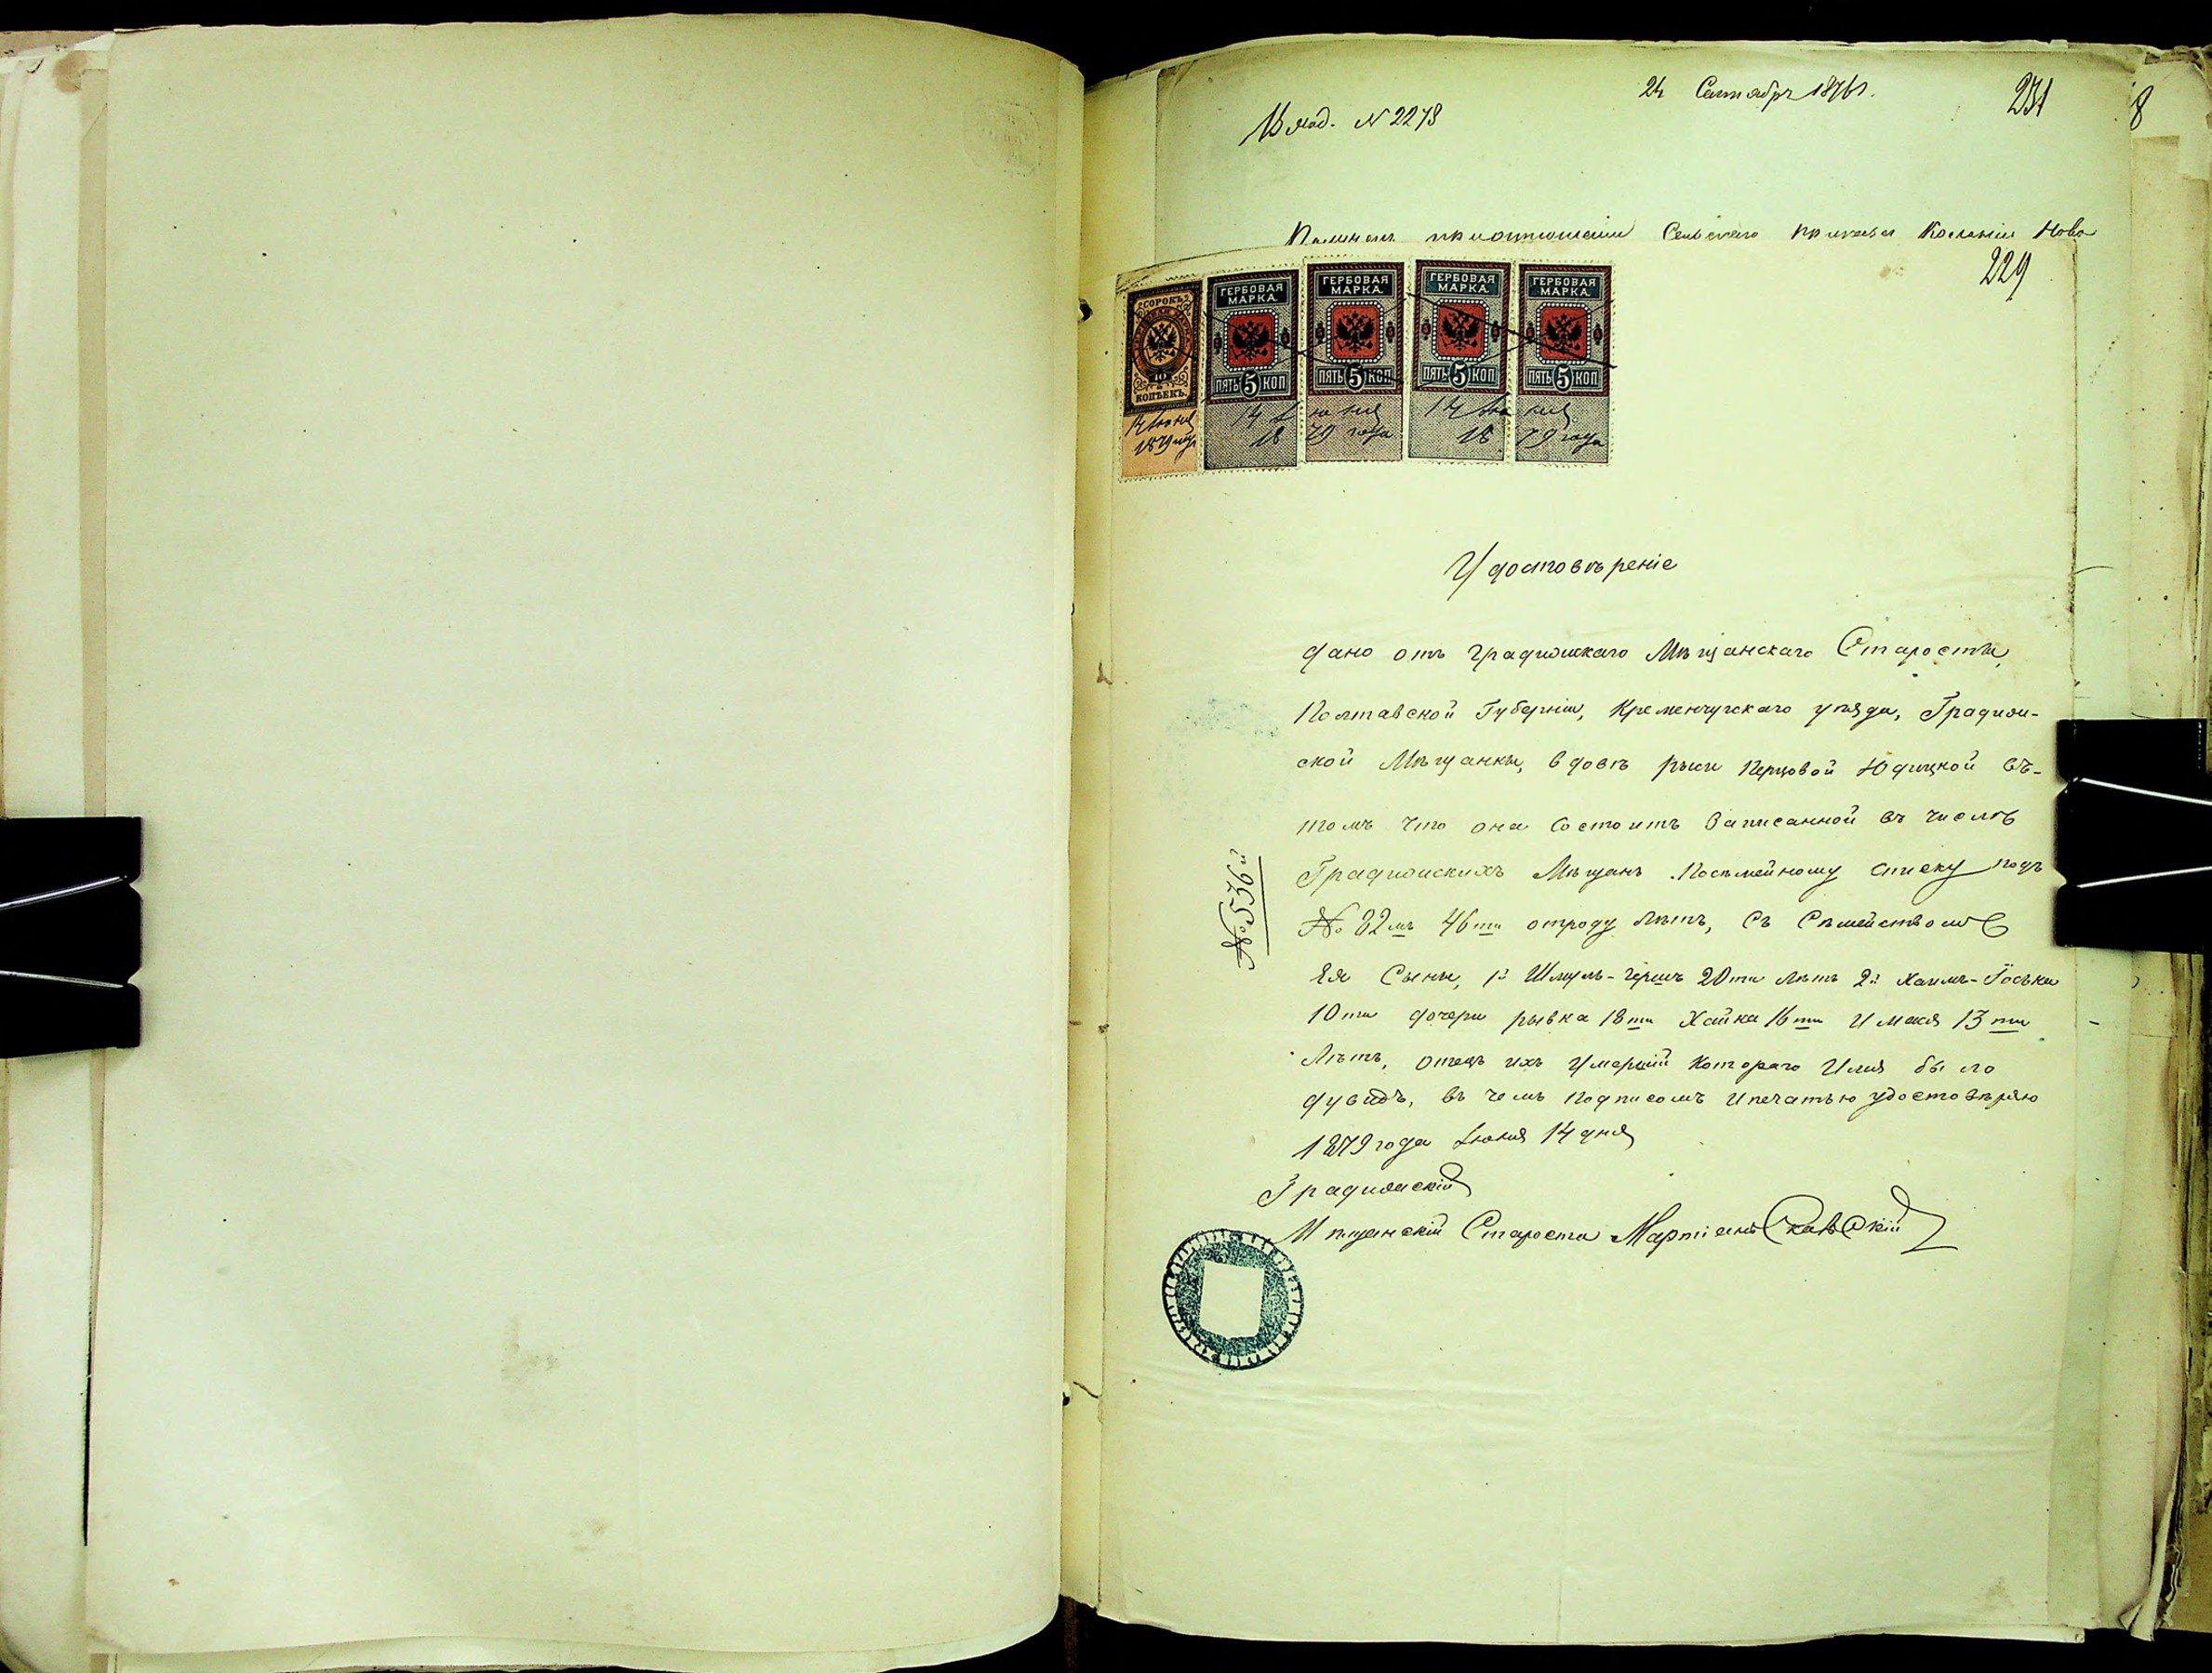 24 Сентября 1876 г.
231
8
Вход. N 2278
при отношении Сельскаго приказа Колонии Ново
229
СОРОКЪ
КОПѢЕКЪ.
14 Июня
1879 году
ГЕРБОВАЯ МАРКА.
ПЯТЬ 5 КОП
ГЕРБОВАЯ МАРКА.
ПЯТЬ 5 КОП
14 Июня
1879 года
ГЕРБОВАЯ МАРКА.
ПЯТЬ 5 КОП
ГЕРБОВАЯ МАРКА.
ПЯТЬ 5 КОП
14 Июня
1879 года
Удостовѣреніе
дано отъ Градижскаго Мѣщанскаго Старосты,
Полтавской Губерніи, Кременчугскаго уѣзда, Градиж-
ской Мѣщанки, вдовѣ рыси Перцовой Юдицкой въ-
томъ что она Состоитъ Записанной въ числѣ
Градижскихъ Мѣщанъ Посѣмейному списку подъ
№ 82мъ 46ти отроду лѣтъ, Съ Сѣмействомъ
Ея Сыны, 1й Шмуль-Гершъ 20ти лѣтъ 2й Хаимъ-Госька
10ти дочери рывка 18ти Хайка 16ти И макя 13ти
Лѣтъ, отецъ ихъ Умершій Котораго Имя было
дувидъ, въ чемъ подписомъ Ипечатью удостовѣряю
1879 года Июня 14 дня
Градижскій
Мѣщанскій Староста Мартіанъ Скавскій
№ 536й